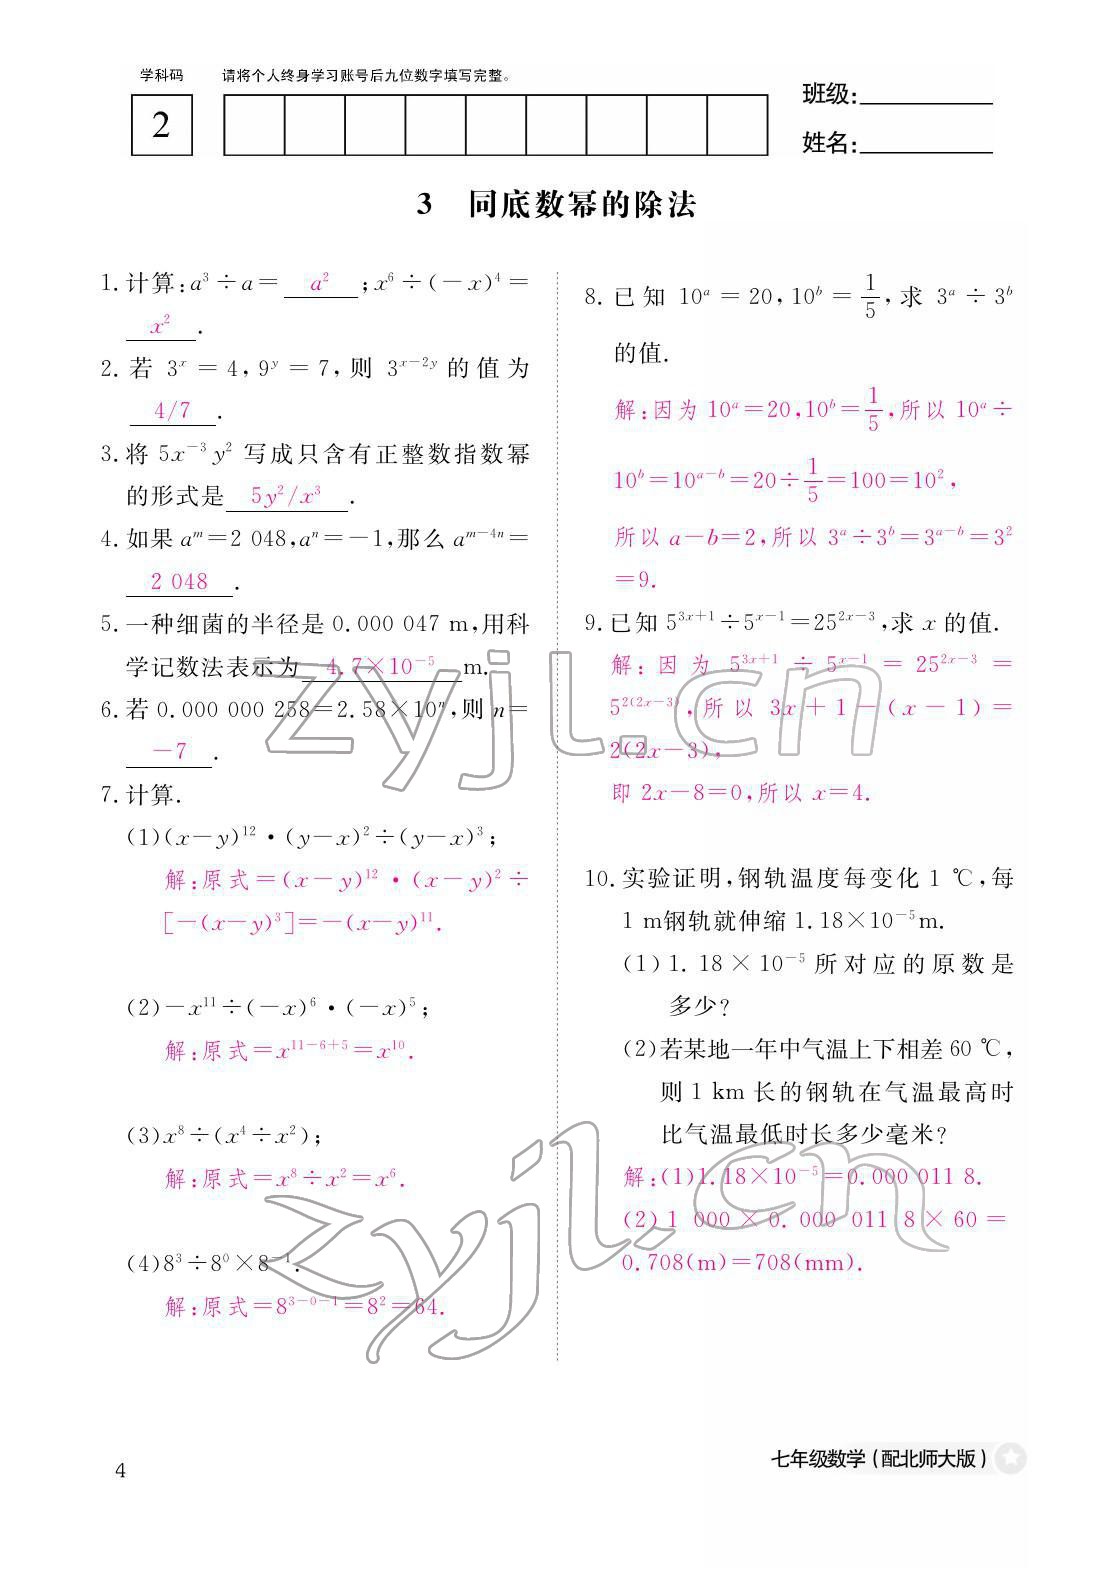 学科码 请将个人终身学习账号后九位数字填写完整。
2
班级:
姓名:
3 同底数幂的除法
1. 计算:a³÷a= a² ;x⁶÷(-x)⁴=
x² .
2. 若 3ˣ = 4, 9ʸ = 7, 则 3ˣ⁻²ʸ 的值为
4/7 .
3. 将 5x⁻³y² 写成只含有正整数指数幂
的形式是 5y²/x³ .
4. 如果 aᵐ=2 048,aⁿ=-1,那么 aᵐ⁻⁴ⁿ=
2 048 .
5. 一种细菌的半径是 0.000 047 m,用科
学记数法表示为 4.7×10⁻⁵ m.
6. 若 0.000 000 258=2.58×10ⁿ,则 n=
-7 .
7. 计算.
(1)(x-y)¹²•(y-x)²÷(y-x)³;
解:原式=(x-y)¹²•(x-y)²÷
[-(x-y)³]=-(x-y)¹¹.
(2)-x¹¹÷(-x)⁶•(-x)⁵;
解:原式=x¹¹⁻⁶⁺⁵=x¹⁰.
(3)x⁸÷(x⁴÷x²);
解:原式=x⁸÷x²=x⁶.
(4)8³÷8⁰×8⁻¹.
解:原式=8³⁻⁰⁻¹=8²=64.
8. 已知 10ᵃ=20,10ᵇ=1/5,求 3ᵃ÷3ᵇ
的值.
解:因为 10ᵃ=20,10ᵇ=1/5,所以 10ᵃ÷
10ᵇ=10ᵃ⁻ᵇ=20÷1/5=100=10²,
所以 a-b=2,所以 3ᵃ÷3ᵇ=3ᵃ⁻ᵇ=3²
=9.
9. 已知 5³ˣ⁺¹÷5ˣ⁻¹=25²ˣ⁻³,求 x 的值.
解:因为 5³ˣ⁺¹÷5ˣ⁻¹=25²ˣ⁻³=
5²⁽²ˣ⁻³⁾,所以 3x+1-(x-1)=
2(2x-3),
即 2x-8=0,所以 x=4.
10. 实验证明,钢轨温度每变化 1 ℃,每
1 m钢轨就伸缩 1.18×10⁻⁵m.
(1)1.18×10⁻⁵ 所对应的原数是
多少?
(2)若某地一年中气温上下相差 60 ℃,
则 1 km 长的钢轨在气温最高时
比气温最低时长多少毫米?
解:(1)1.18×10⁻⁵=0.000 011 8.
(2)1 000×0.000 011 8×60=
0.708(m)=708(mm).
zyjl.cn
zyjl.cn
4
七年级数学(配北师大版)